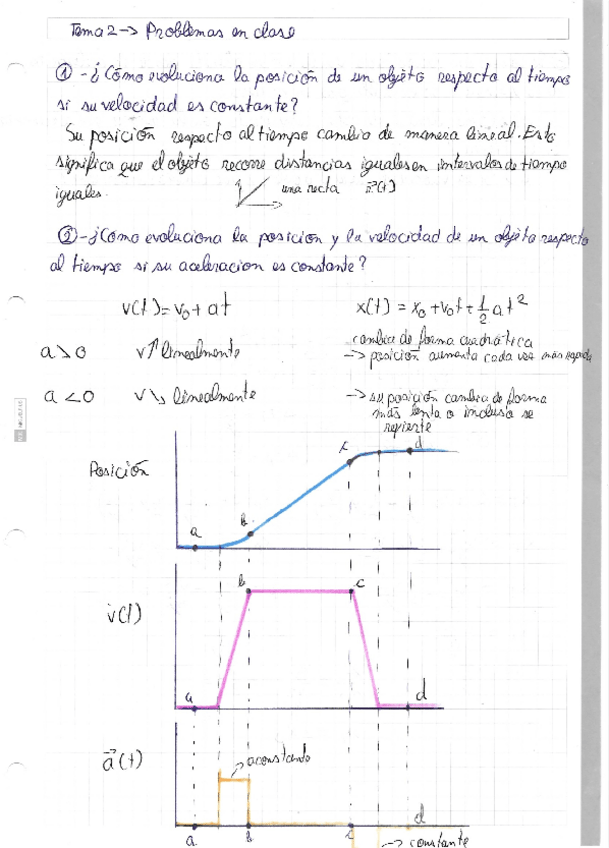 Tema 2 -> Problemas en clase
① - ¿Cómo evoluciona la posición de un objeto respecto al tiempo
si su velocidad es constante?
Su posición respecto al tiempo cambia de manera lineal. Esto
significa que el objeto recorre distancias iguales en intervalos de tiempo
iguales.
una recta
② - ¿Como evoluciona la posicion y la velocidad de un objeto respecto
al tiempo si su aceleracion es constante?
v(t) = v₀ + at
x(t) = x₀ + v₀t + 1/2 at²
a > 0
v↑ linealmente
cambia de forma cuadrática
-> posición aumenta cada vez más rapida
a < 0
v↘ linealmente
-> su posición cambia de forma
más lenta o incluso se
Posición
a
b
d
v(t)
b
c
a
d
a⃗(t)
a constante
d
a
b
c
-> constante